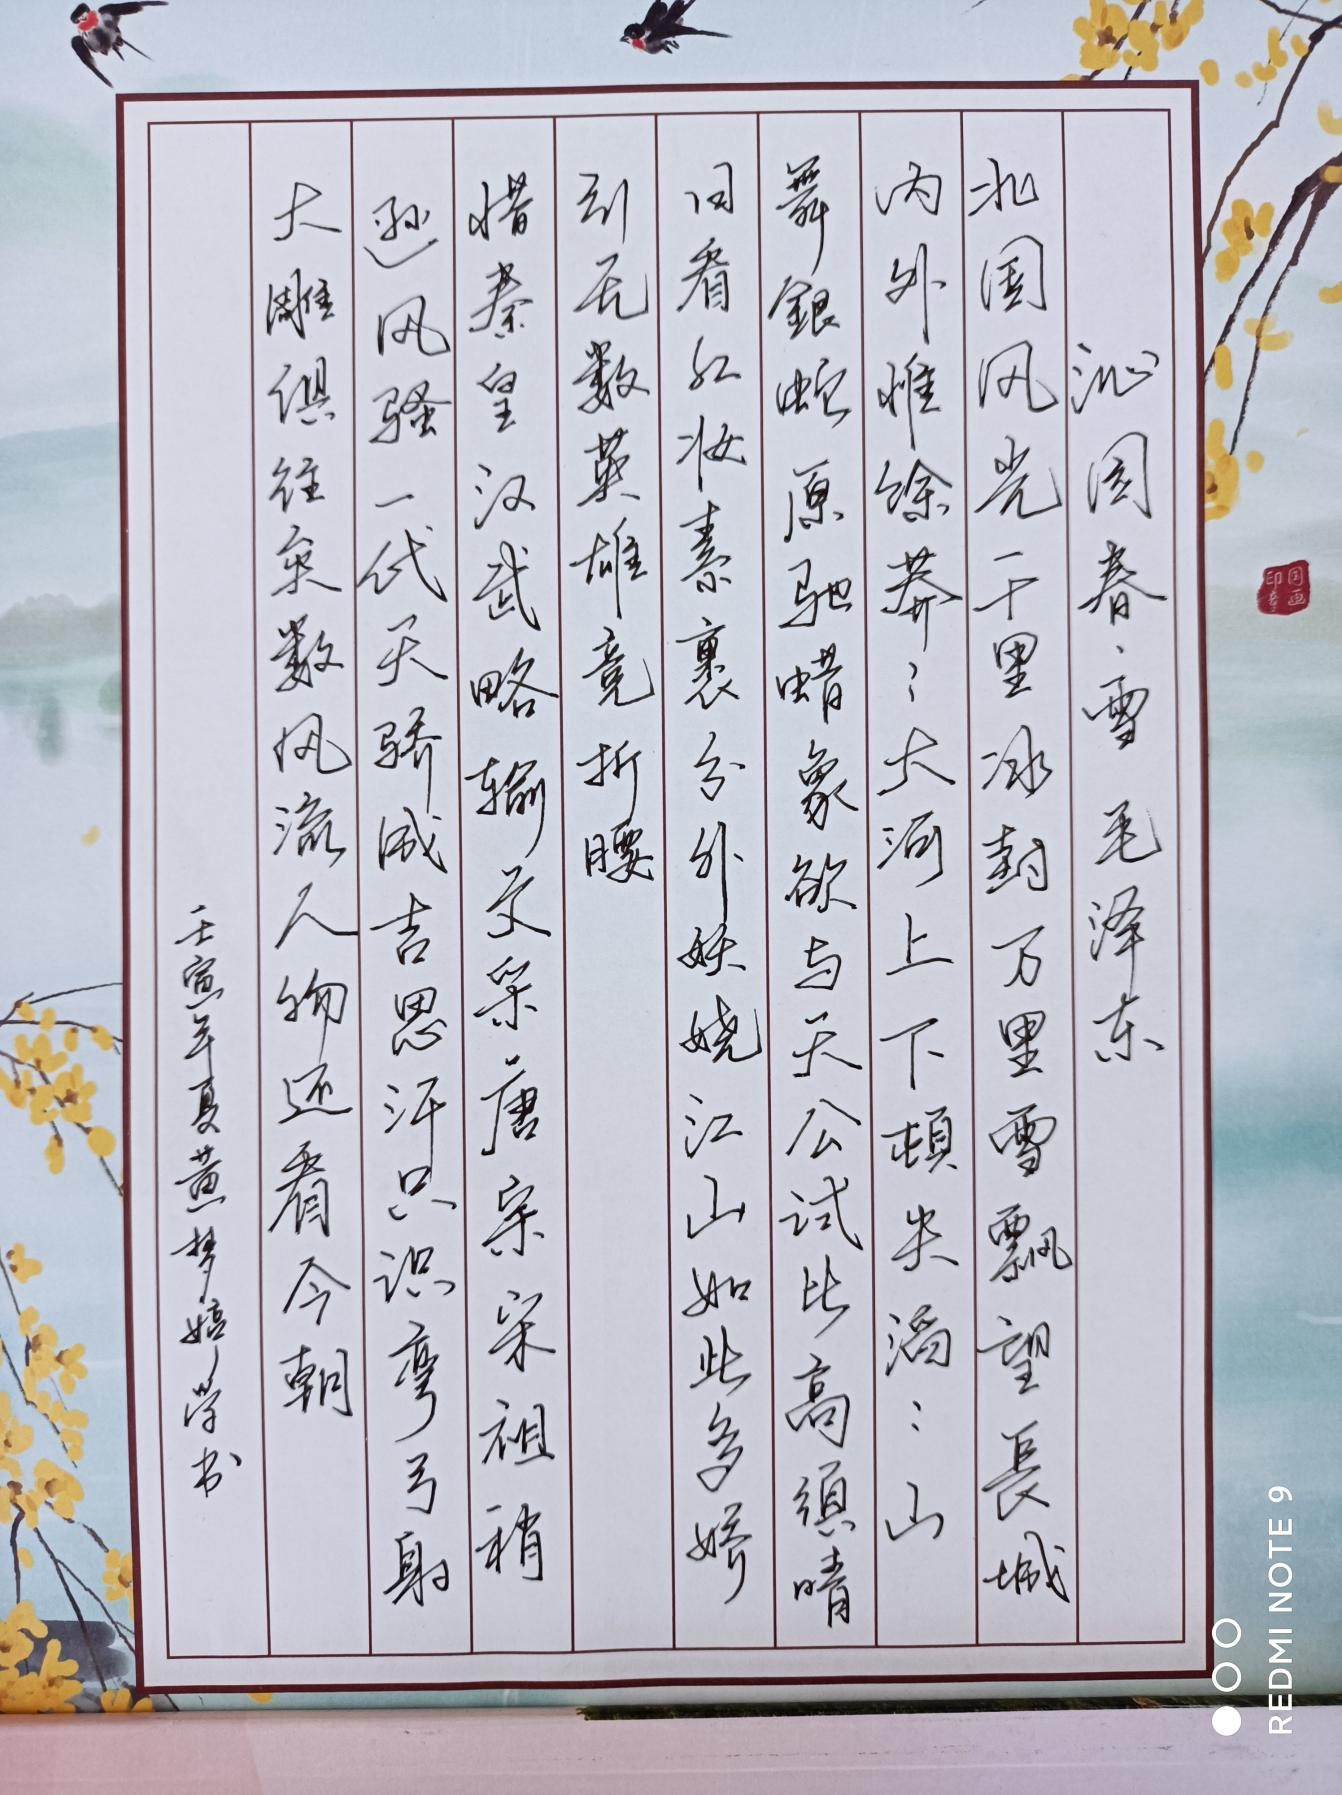 沁园春、雪 毛泽东
北国风光千里冰封万里雪飘望長城
内外惟馀莽〻大河上下頓失滔〻山
舞銀蛇原驰蜡象欲与天公试比高須晴
日看红妆素裹分外妖娆江山如此多娇
引无数英雄竞折腰
惜秦皇汉武略输文采唐宗宋祖稍
逊风骚一代天骄成吉思汗只识弯弓射
大雕俱往矣数风流人物还看今朝
壬寅年夏黄梦婷学书
国画
印章
REDMI NOTE 9